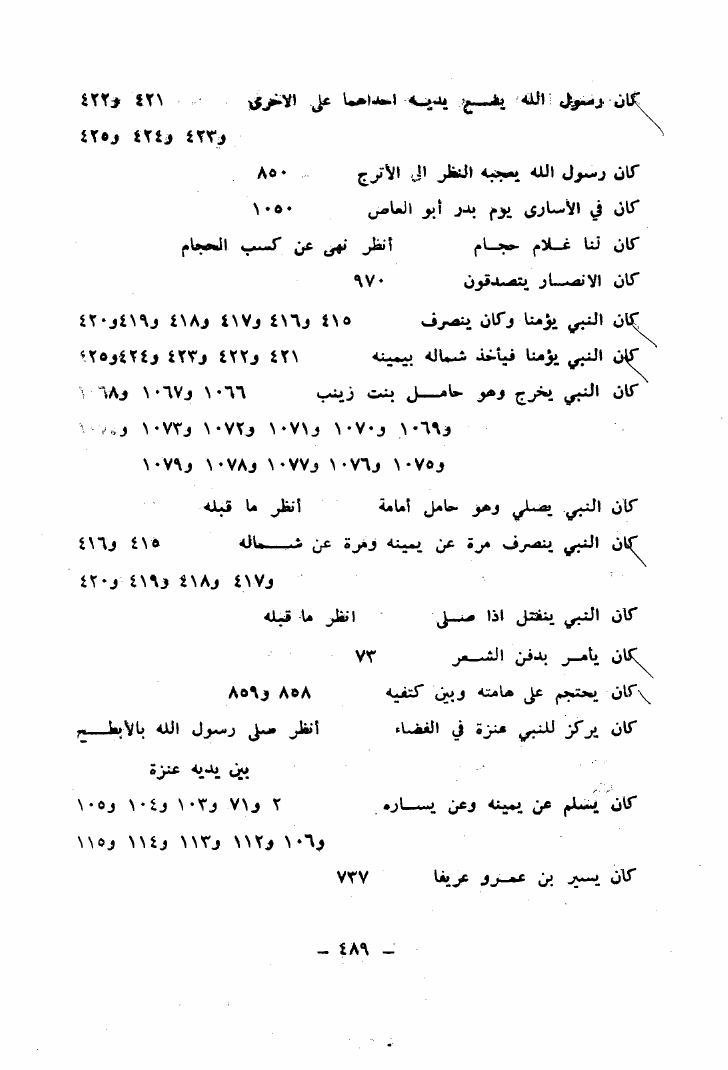 كان رسول الله يضـــع يديــه احداهما على الاخرى ٤٢١ و٤٢٢
و٤٢٣ و٤٢٤ و٤٢٥
كان رسول الله يعجبه النظر الى الأترج ٨٥٠
كان في الأسارى يوم بدر أبو العاص ١٠٥٠
كان لنا غــلام حجــام أنظر نهى عن كسب الحجام
كان الانصــار يتصدقون ٩٧٠
كان النبي يؤمنا وكان ينصرف ٤١٥ و٤١٦ و٤١٧ و٤١٨ و٤١٩و٤٢٠
كان النبي يؤمنا فيأخذ شماله بيمينه ٤٢١ و٤٢٢ و٤٢٣ و٤٢٤و٤٢٥
كان النبي يخرج وهو حامــل بنت زينب ١٠٦٦ و١٠٦٧ و١٠٦٨
و١٠٦٩ و١٠٧٠ و١٠٧١ و١٠٧٢ و١٠٧٣
و١٠٧٥ و١٠٧٦ و١٠٧٧ و١٠٧٨ و١٠٧٩
كان النبي يصلي وهو حامل أمامة أنظر ما قبله
كان النبي ينصرف مرة عن يمينه ومرة عن شــــماله ٤١٥ و٤١٦
و٤١٧ و٤١٨ و٤١٩ و٤٢٠
كان النبي ينفتل اذا صــلى انظر ما قبله
كان يأمــر بدفن الشــعر ٧٣
كان يحتجم على هامته وبين كتفيه ٨٥٨ و٨٥٩
كان يركز للنبي عنزة في الفضاء أنظر صلى رسول الله بالأبطــــح
بين يديه عنزة
كان يسلم عن يمينه وعن يســاره ٢ و٧١ و١٠٣ و١٠٤ و١٠٥
و١٠٦ و١١٢ و١١٣ و١١٤ و١١٥
كان يسير بن عمـرو عريفا ٧٣٧
– ٤٨٩ –